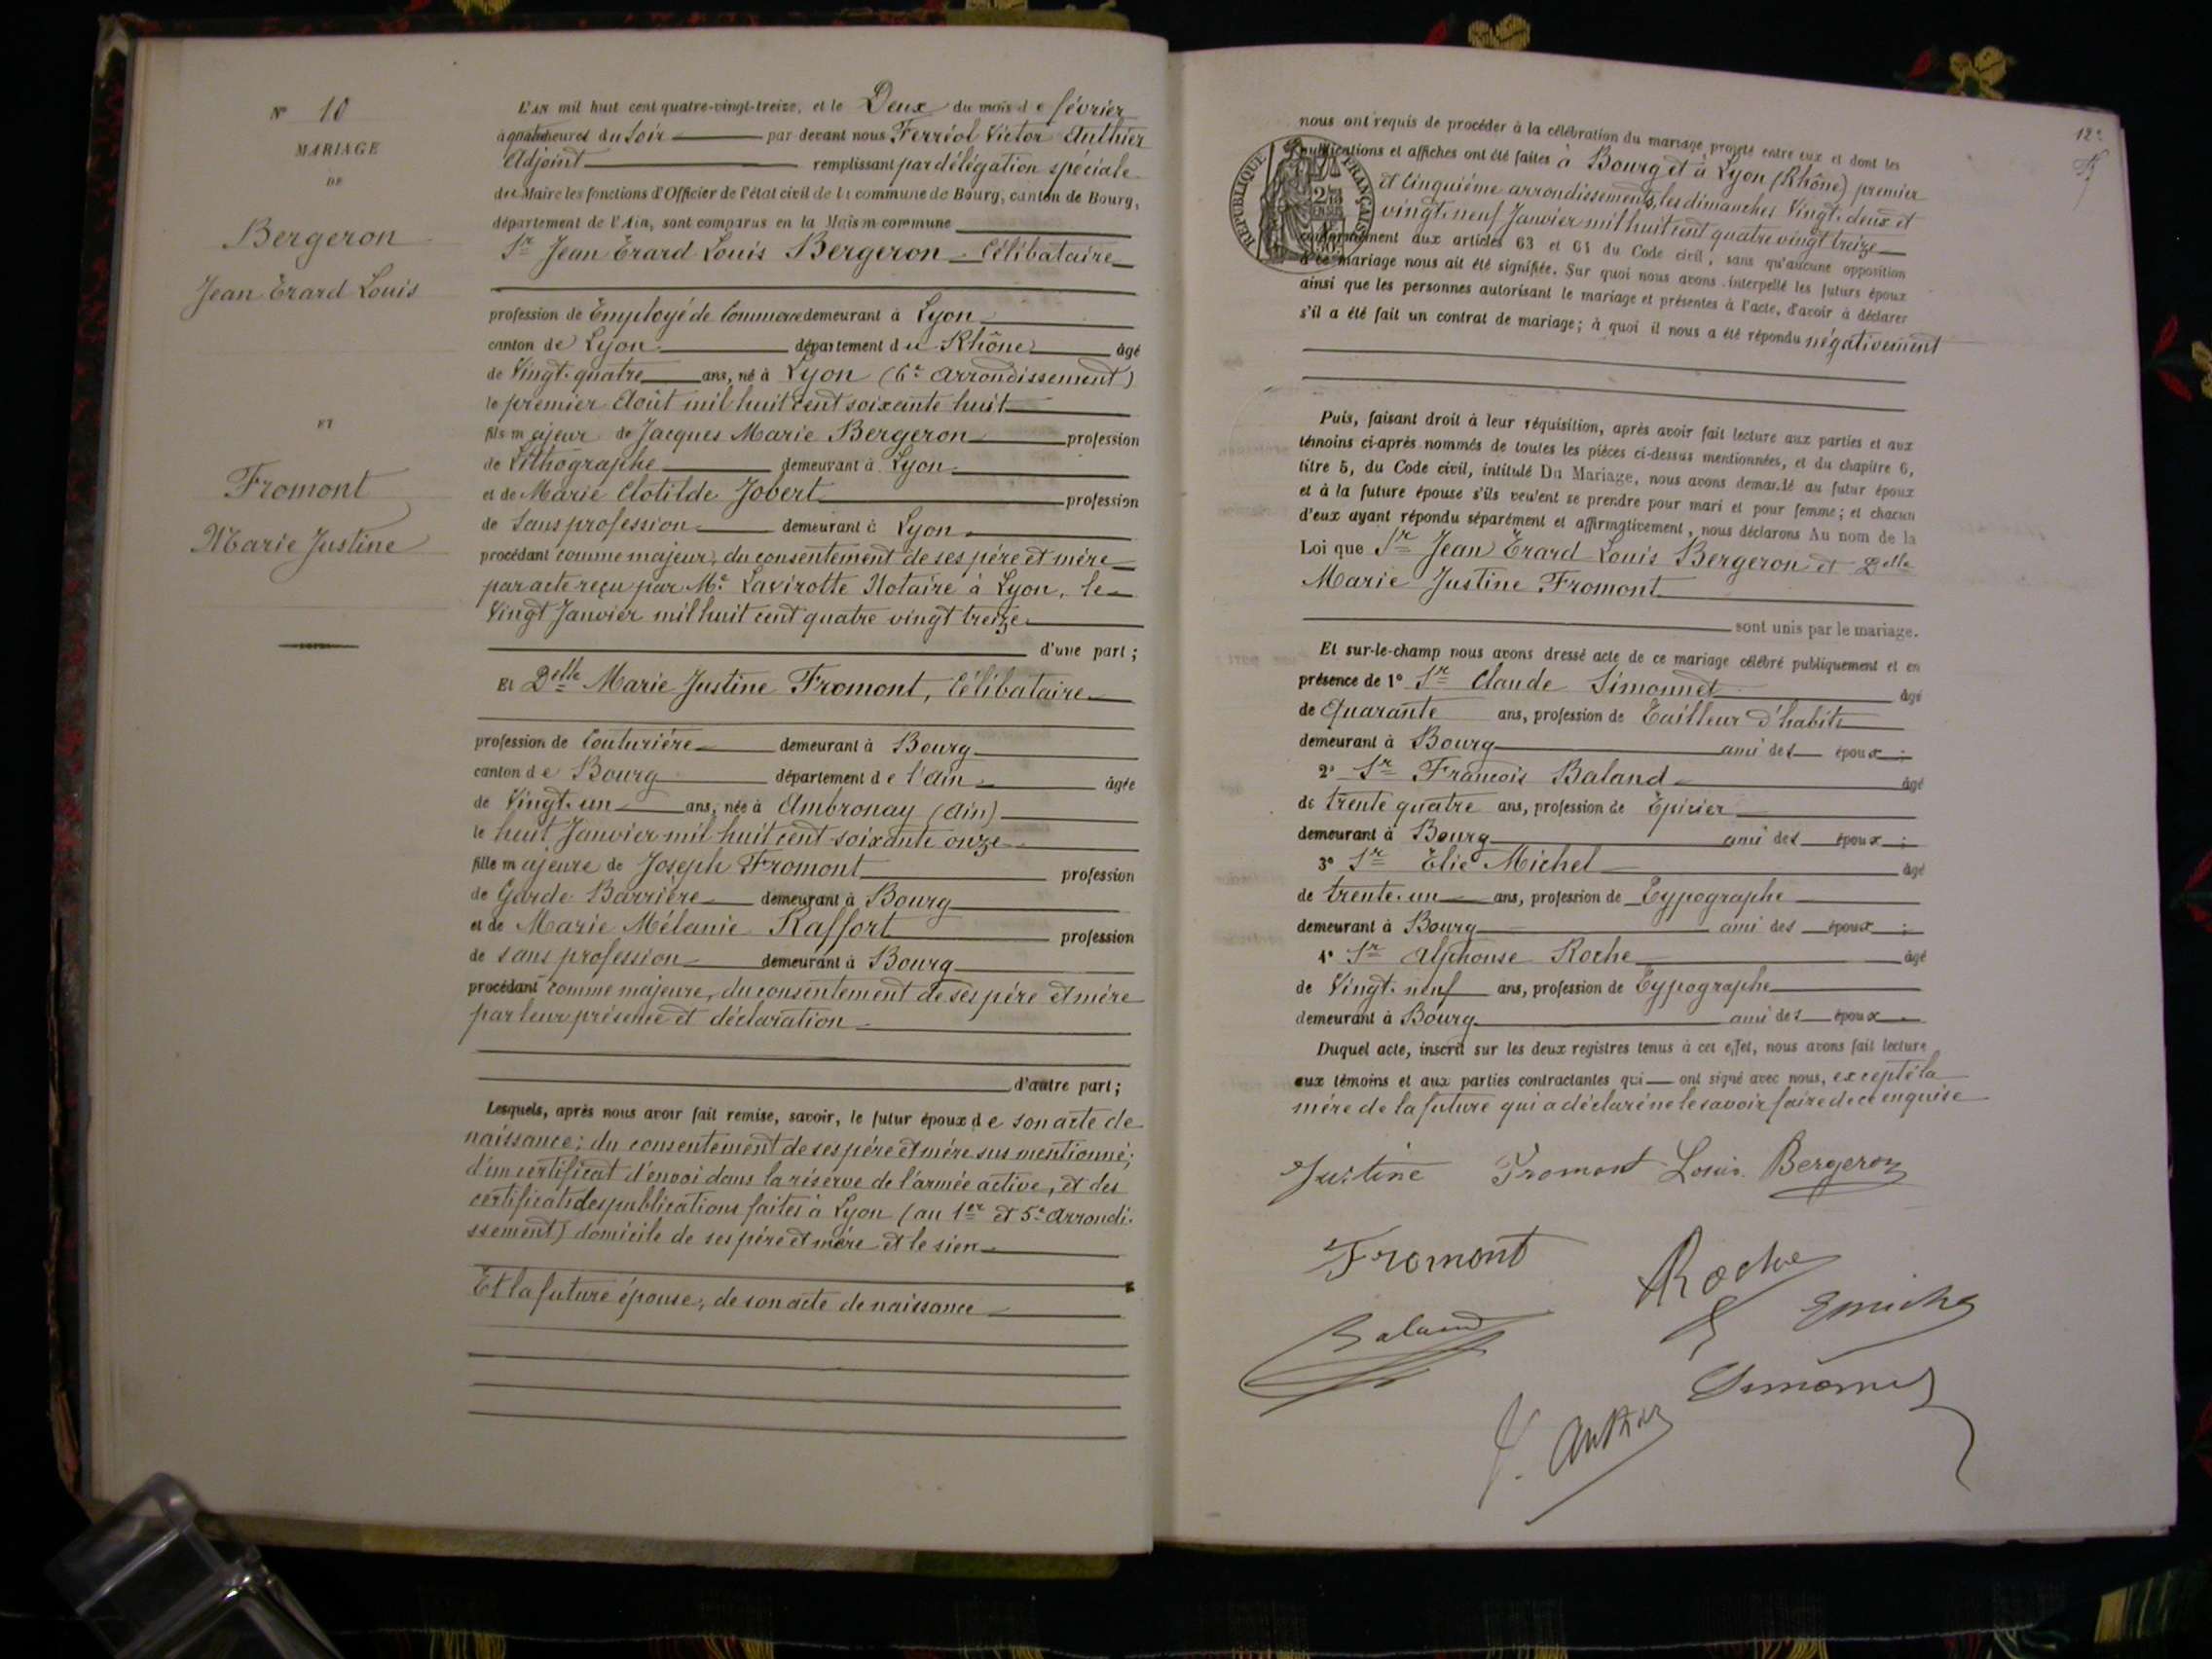 N° 10
MARIAGE
DE
Bergeron
Jean Erard Louis
ET
Fromont
Marie Justine
L'AN mil huit cent quatre-vingt-treize, et le Deux du mois de février
à quatre heures du Soir par devant nous Ferréol Victor Authier
Adjoint remplissant par délégation spéciale
du Maire les fonctions d'Officier de l'état civil de la commune de Bourg, canton de Bourg,
département de l'Ain, sont comparus en la Maison commune
Sr Jean Erard Louis Bergeron Célibataire
profession de Employé de Commerce demeurant à Lyon
canton de Lyon département du Rhône âgé
de Vingt-quatre ans, né à Lyon (6e arrondissement)
le premier Août mil huit cent soixante huit
fils majeur de Jacques Marie Bergeron profession
de Lithographe demeurant à Lyon
et de Marie Clotilde Jobert profession
de Sans profession demeurant à Lyon
procédant comme majeur, du consentement de ses père et mère
par acte reçu par Me Lavirotte Notaire à Lyon, le
Vingt Janvier mil huit cent quatre vingt treize
d'une part;
Et Delle Marie Justine Fromont, Célibataire
profession de Couturière demeurant à Bourg
canton de Bourg département de l'Ain âgée
de Vingt-un ans, née à Ambronay (Ain)
le huit Janvier mil huit cent soixante onze
fille majeure de Joseph Fromont profession
de Garde-Barrière demeurant à Bourg
et de Marie Mélanie Raffort profession
de sans profession demeurant à Bourg
procédant comme majeure, du consentement de ses père et mère
par leur présence et déclaration
d'autre part;
Lesquels, après nous avoir fait remise, savoir, le futur époux de son acte de
naissance; du consentement de ses père et mère sus mentionné;
d'un certificat d'envoi dans la réserve de l'armée active, et des
certificats des publications faites à Lyon (au 1er et 5e Arrondi-
ssement) domicile de ses père et mère et le sien
Et la future épouse, de son acte de naissance
12e
nous ont requis de procéder à la célébration du mariage projeté entre eux et dont les
publications et affiches ont été faites à Bourg et à Lyon (Rhône) premier
et Cinquième arrondissements, les dimanches Vingt-deux et
vingt-neuf Janvier mil huit cent quatre vingt treize
RÉPUBLIQUE FRANÇAISE
conformément aux articles 63 et 64 du Code civil, sans qu'aucune opposition
à ce mariage nous ait été signifiée. Sur quoi nous avons interpellé les futurs époux
ainsi que les personnes autorisant le mariage et présentes à l'acte, d'avoir à déclarer
s'il a été fait un contrat de mariage; à quoi il nous a été répondu négativement
Puis, faisant droit à leur réquisition, après avoir fait lecture aux parties et aux
témoins ci-après nommés de toutes les pièces ci-dessus mentionnées, et du chapitre 6,
titre 5, du Code civil, intitulé Du Mariage, nous avons demandé au futur époux
et à la future épouse s'ils veulent se prendre pour mari et pour femme; et chacun
d'eux ayant répondu séparément et affirmativement, nous déclarons Au nom de la
Loi que Sr Jean Erard Louis Bergeron et Delle
Marie Justine Fromont
sont unis par le mariage.
Et sur-le-champ nous avons dressé acte de ce mariage célébré publiquement et en
présence de 1° Sr Claude Simonnet âgé
de Quarante ans, profession de Tailleur d'habits
demeurant à Bourg ami des époux;
2° Sr François Baland âgé
de trente quatre ans, profession de Epicier
demeurant à Bourg ami des époux;
3° Sr Elie Michel âgé
de trente-un ans, profession de Typographe
demeurant à Bourg ami des époux;
4° Sr Alphonse Roche âgé
de Vingt-neuf ans, profession de Typographe
demeurant à Bourg ami des époux
Duquel acte, inscrit sur les deux registres tenus à cet effet, nous avons fait lecture
aux témoins et aux parties contractantes qui ont signé avec nous, excepté la
mère de la future qui a déclaré ne le savoir faire de ce enquise
Justine Fromont Louis Bergeron
Fromont
Roche
Baland
E Michel
Simonnet
F. Authier